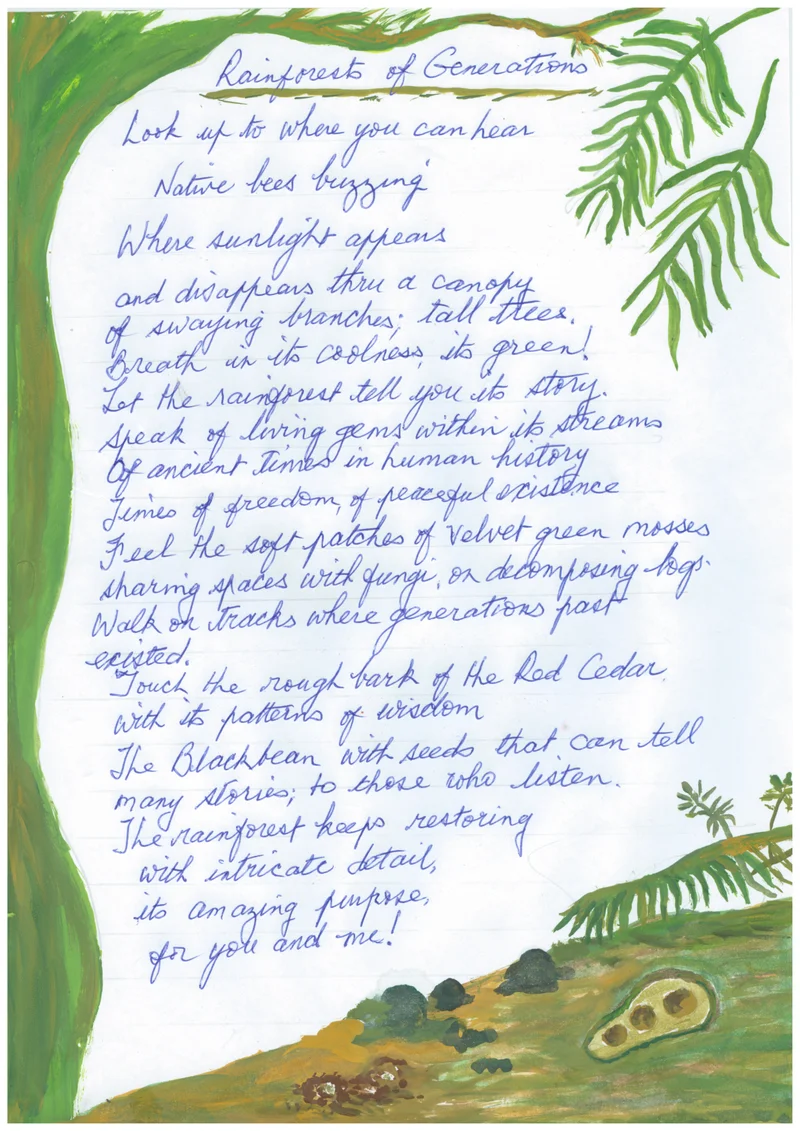 Rainforests of Generations
Look up to where you can hear
Native bees buzzing
Where sunlight appears
and disappears thru a canopy
of swaying branches; tall trees.
Breath in its coolness, its green!
Let the rainforest tell you its story.
Speak of living gems within its streams
Of ancient times in human history
Times of freedom, of peaceful existence
Feel the soft patches of velvet green mosses
sharing spaces with fungi, on decomposing logs.
Walk on tracks where generations past
existed.
Touch the rough bark of the Red Cedar.
with its patterns of wisdom
The Blackbean with seeds that can tell
many stories; to those who listen.
The rainforest keeps restoring
with intricate detail,
its amazing purpose,
for you and me!